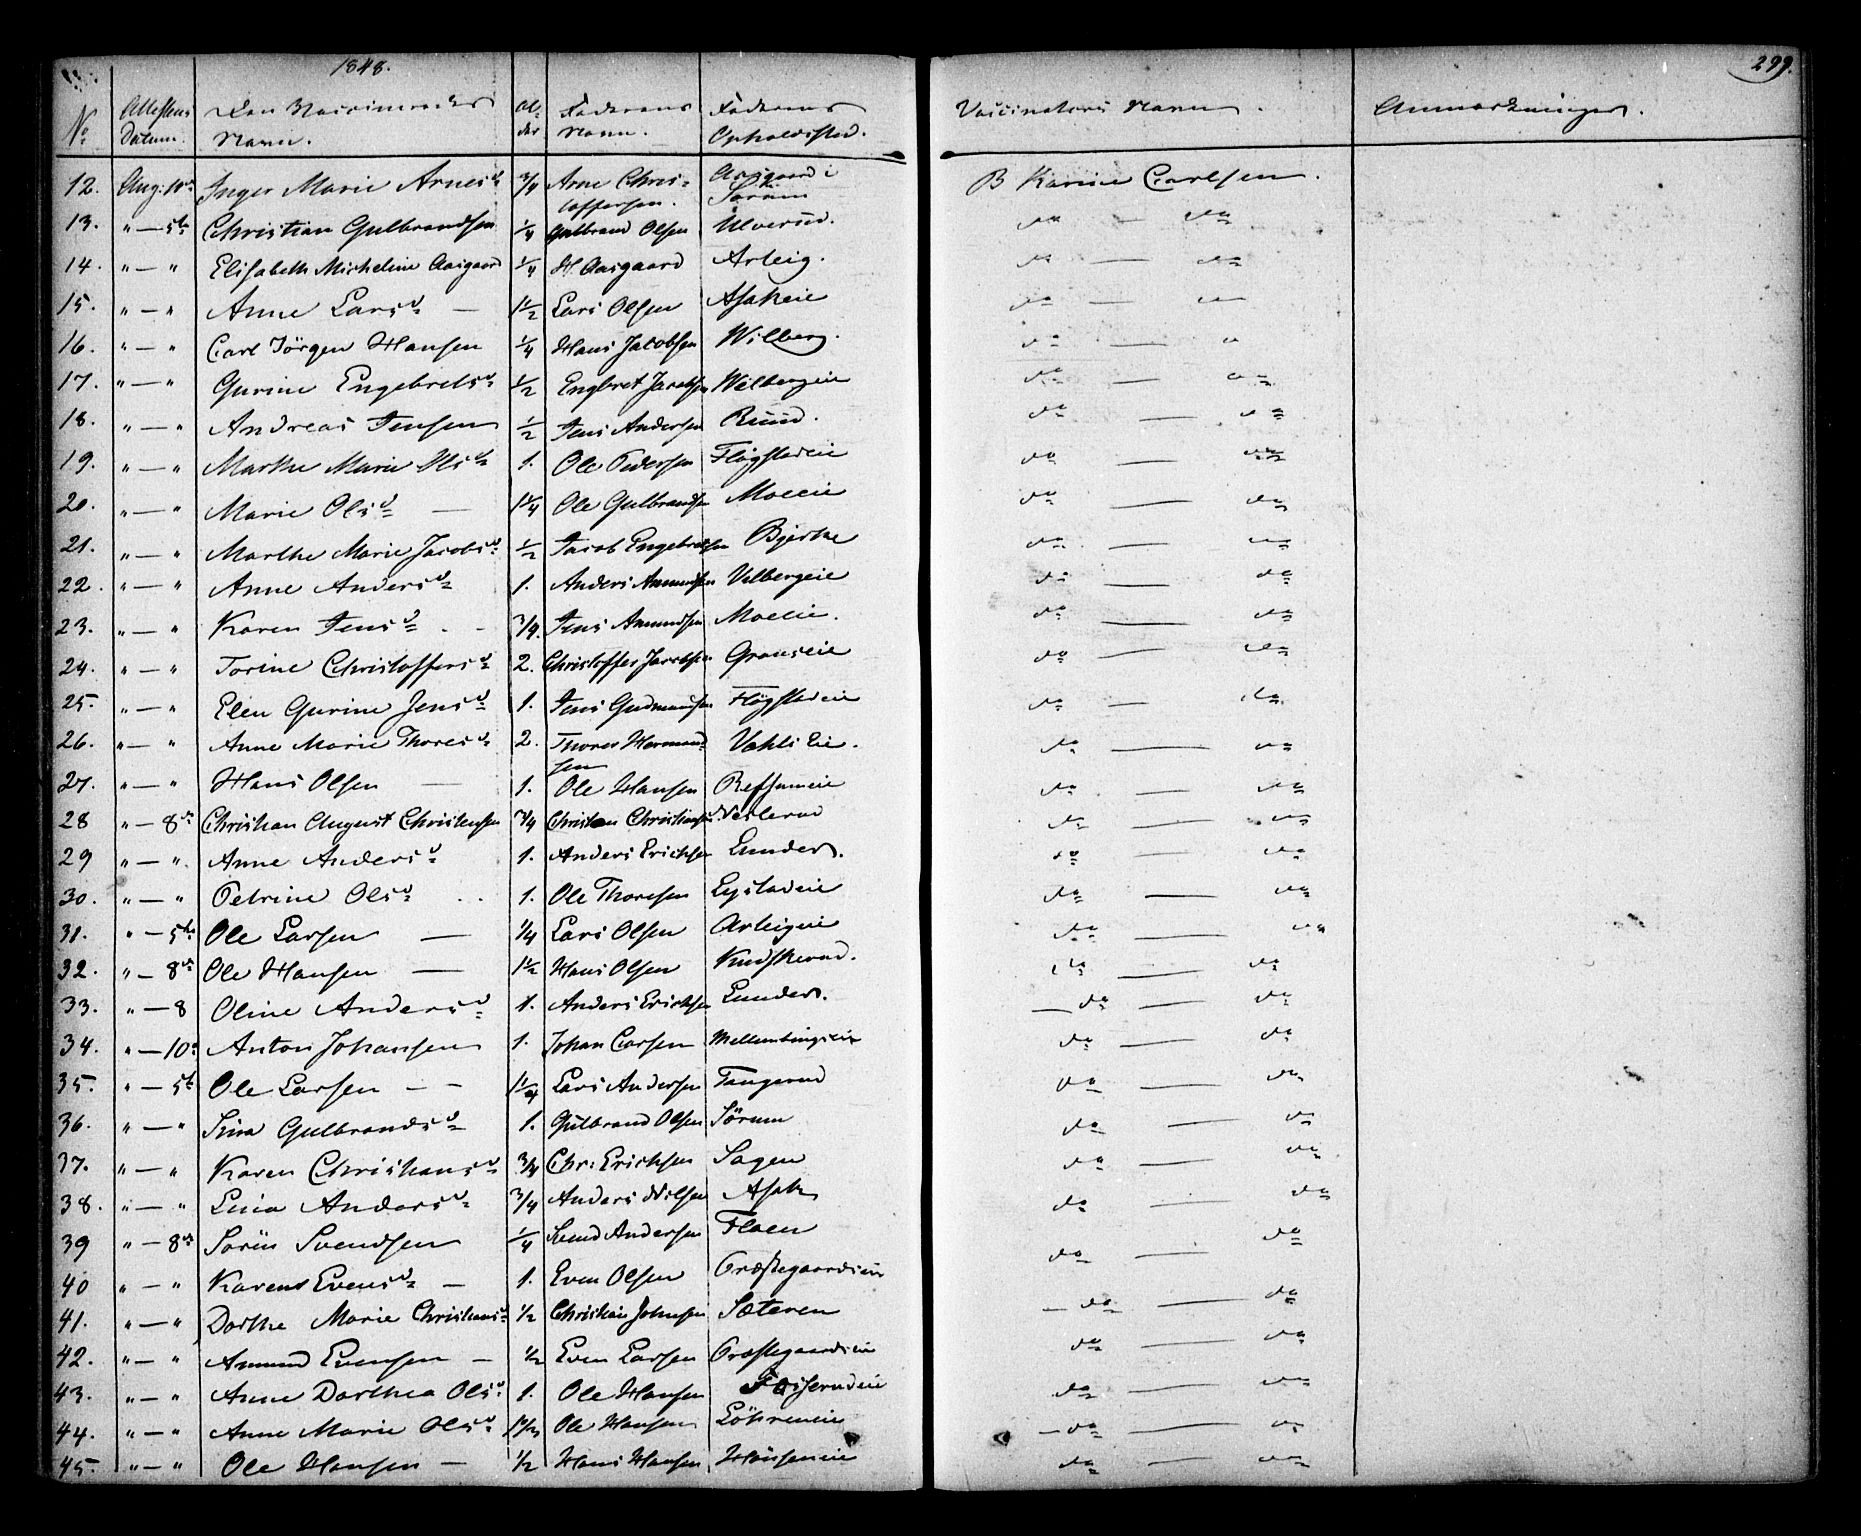 1848.
299.
No Attestens Datum. Den Vaccineredes Navn. Al-der Faderens Navn. Faderens Opholdsted. Vaccinateurs Navn. Anmærkninger.
12. Aug: 10de Inger Marie Arnesd 3/4 Arne Christoffersen. Aasgaard i Sørum B Karine Carlsen.
13. " — 5te Christian Gulbrandsen 1/4 Gulbrand Olsen Ulverud. do — do
14. " — " Elisabeth Micheline Aasgaard 1/4 H. Aasgaard Arteig. do — do
15. " — " Anne Larsd — 1 1/2 Lars Olsen Asakeie do — do
16. " — " Carl Jörgen Hansen 1/4 Hans Jacobsen Wilberg. do — do
17. " — " Gurine Engebretsd 1/2 Engbret Jacobsen Wilbergeie do — do
18. " — " Andreas Jensen 1/2 Jens Andersen Ruud. do — do
19. " — " Marthe Marie Olsd 1. Ole Pedersen Flögstadeie do — do
20. " — " Marie Olsd — 1 1/4 Ole Gulbrandsen Moeeie do — do
21. " — " Marthe Marie Jacobsd 1/2 Jacob Engebretsen Bjerke do — do
22. " — " Anne Andersd 1. Anders Amundsen Vilbergeie do — do
23. " — " Karen Jensd - 3/4. Jens Amundsen Moeeie. do — do
24. " — " Torine Christoffersd 2. Christoffer Jacobsen Granseie do — do
25. " — " Elen Gurine Jensd 1. Jens Gudmundsen Flögstadeie do — do
26. " — " Anne Marie Thoresd 2. Thores Hermandsen Vahls Eie. do — do
27. " — " Hans Olsen — 1. Ole Hansen Refsumeie do — do
28 " — 8de Christian August Christensen 3/4 Christian Christiansen Nesterud do — do
29 " — " Anne Andersd 1. Anders Erichsen Lunder. do — do
30. " — " Petrine Olsd 1. Ole Thoresen Egstadeie do — do
31. " — 5te Ole Larsen — 1/4 Lars Olsen Arteigeie do — do
32. " — 8de Ole Hansen — 1 1/2 Hans Olsen Kudskerud. do — do
33. " — 8 Oline Andersd 1. Anders Erichsen Lunder. do — do
34. " — 10de Anton Johansen 1. Johan Carsen do — do
35. " — 5te Ole Larsen — 1 1/4 Lars Andersen Tangerud do — do
36. " — " Sina Gulbrandsd 1. Gulbrand Olsen Sörum do — do
37. " — " Karen Christiansd 3/4 Chr: Erichsen Sagen do — do
38. " — " Lina Andersd 3/4 Anders Nilsen Asak do — do
39 " — 8de Sörin Svendsen 1/4 Svend Andersen Floen do — do
40 " — " Karen Evensd — 1. Even Olsen Præstegaardseie
41. " — " Dorthe Marie Christiansd 1/2 Christian Johnsen Sæteren do — do
42. " — " Amund Evensen — 1/2 Even Larsen Præstegaardseie do — do
43. " — " Anne Dorthea Olsd 1. Ole Hansen do — do
44. " — " Anne Marie Olsd Ole Hansen Löhreneie do — do
45. " — " Ole Hansen — 1/2 Hans Hansen do — do